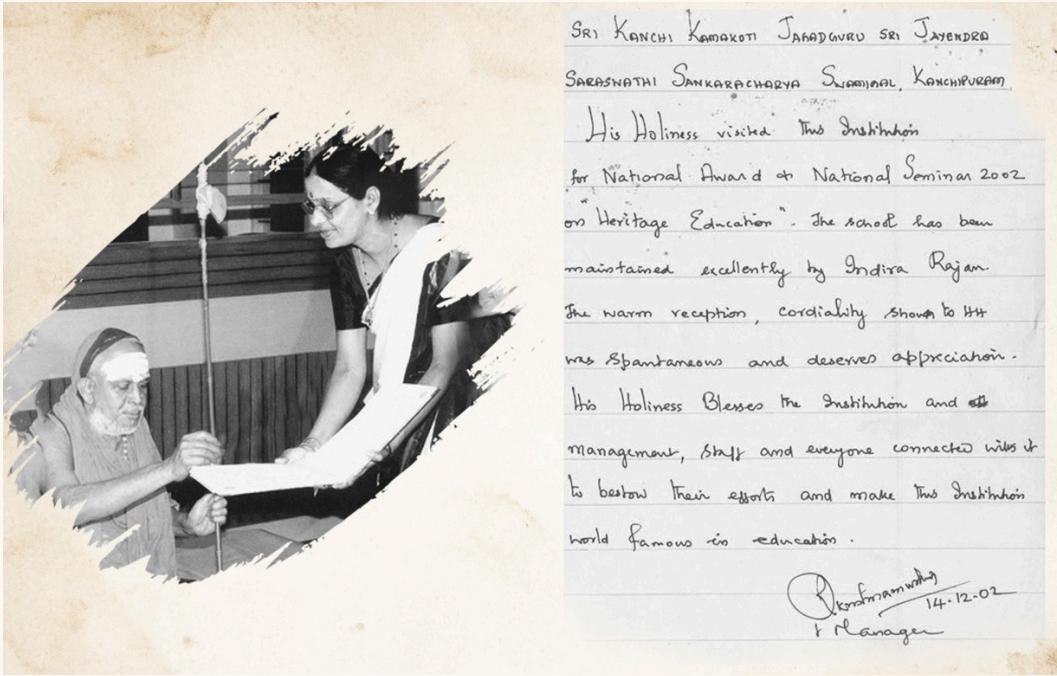 SRI KANCHI KAMAKOTI JAGADGURU SRI JAYENDRA
SARASWATHI SANKARACHARYA SWAMIGAL, KANCHIPURAM
His Holiness visited this Institution
for National Award & National Seminar 2002
on "Heritage Education". The school has been
maintained excellently by Indira Rajan.
The warm reception, cordiality shown to HH
was spontaneous and deserves appreciation.
His Holiness Blesses the Institution and
management, staff and everyone connected with it
to bestow their efforts and make this Institution
world famous in education.
14-12-02
Manager